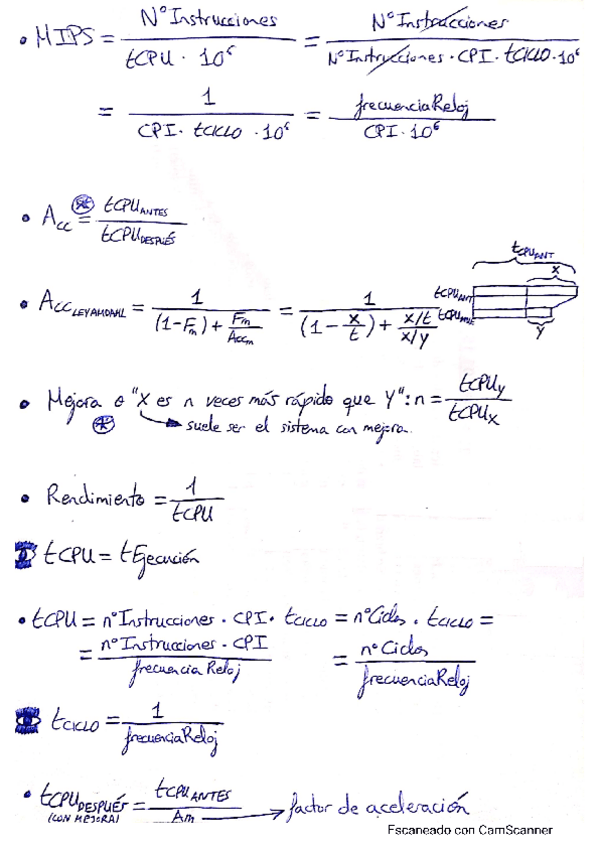 • MIPS = NºInstrucciones / tCPU · 10⁶ = NºInstrucciones / NºInstrucciones · CPI · tCICLO · 10⁶
= 1 / CPI · tCICLO · 10⁶ = frecuenciaReloj / CPI · 10⁶
• Acc = tCPU ANTES / tCPU DESPUÉS
tCPU ANT
x
• Acc LEY AMDAHL = 1 / (1-Fm) + Fm/Accm = 1 / (1 - x/t) + x/t / x/y
tCPU ANT
y
• Mejora o "X es n veces más rápido que Y": n = tCPUY / tCPUX
suele ser el sistema con mejora.
• Rendimiento = 1 / tCPU
tCPU = tEjecución
• tCPU = nºInstrucciones · CPI · tCICLO = nºCiclos · tCICLO =
= nºInstrucciones · CPI / frecuencia Reloj = nºCiclos / frecuenciaReloj
tCICLO = 1 / frecuenciaReloj
• tCPU DESPUÉS (CON MEJORA) = tCPU ANTES / Am → factor de aceleración
Escaneado con CamScanner